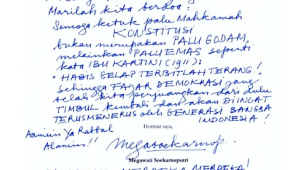 Marilah kita berdoa:
Semoga ketuk palu Mahkamah
KONSTITUSI
bukan merupakan PALU GODAM,
melainkan PALU EMAS seperti
kata IBU KARTINI (1911):
"HABIS GELAP TERBITLAH TERANG!
Sehingga FAJAR DEMOKRASI yang
telah kita perjuangkan dari dulu
TIMBUL kembali dan akan DIINGAT
TERUS MENERUS oleh GENERASI BANGSA
INDONESIA!
Aamiin Ya Rabbal
Alamin!!
Hormat saya,
Megawati Soekarnoputri
MERDEKA! MERDEKA!